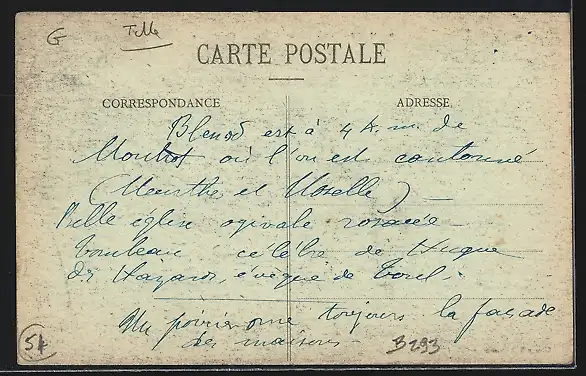 G
CARTE POSTALE
CORRESPONDANCE
ADRESSE
Blenod est à 4 k.m. de
où l'on est cantonné
(Meurthe et Moselle)
Belle eglise ogivale rosacée
Tombeau célèbre de Hugue
des Hazards, évêque de Toul.
Un poirier orne toujours la façade
des maisons -
54
B293